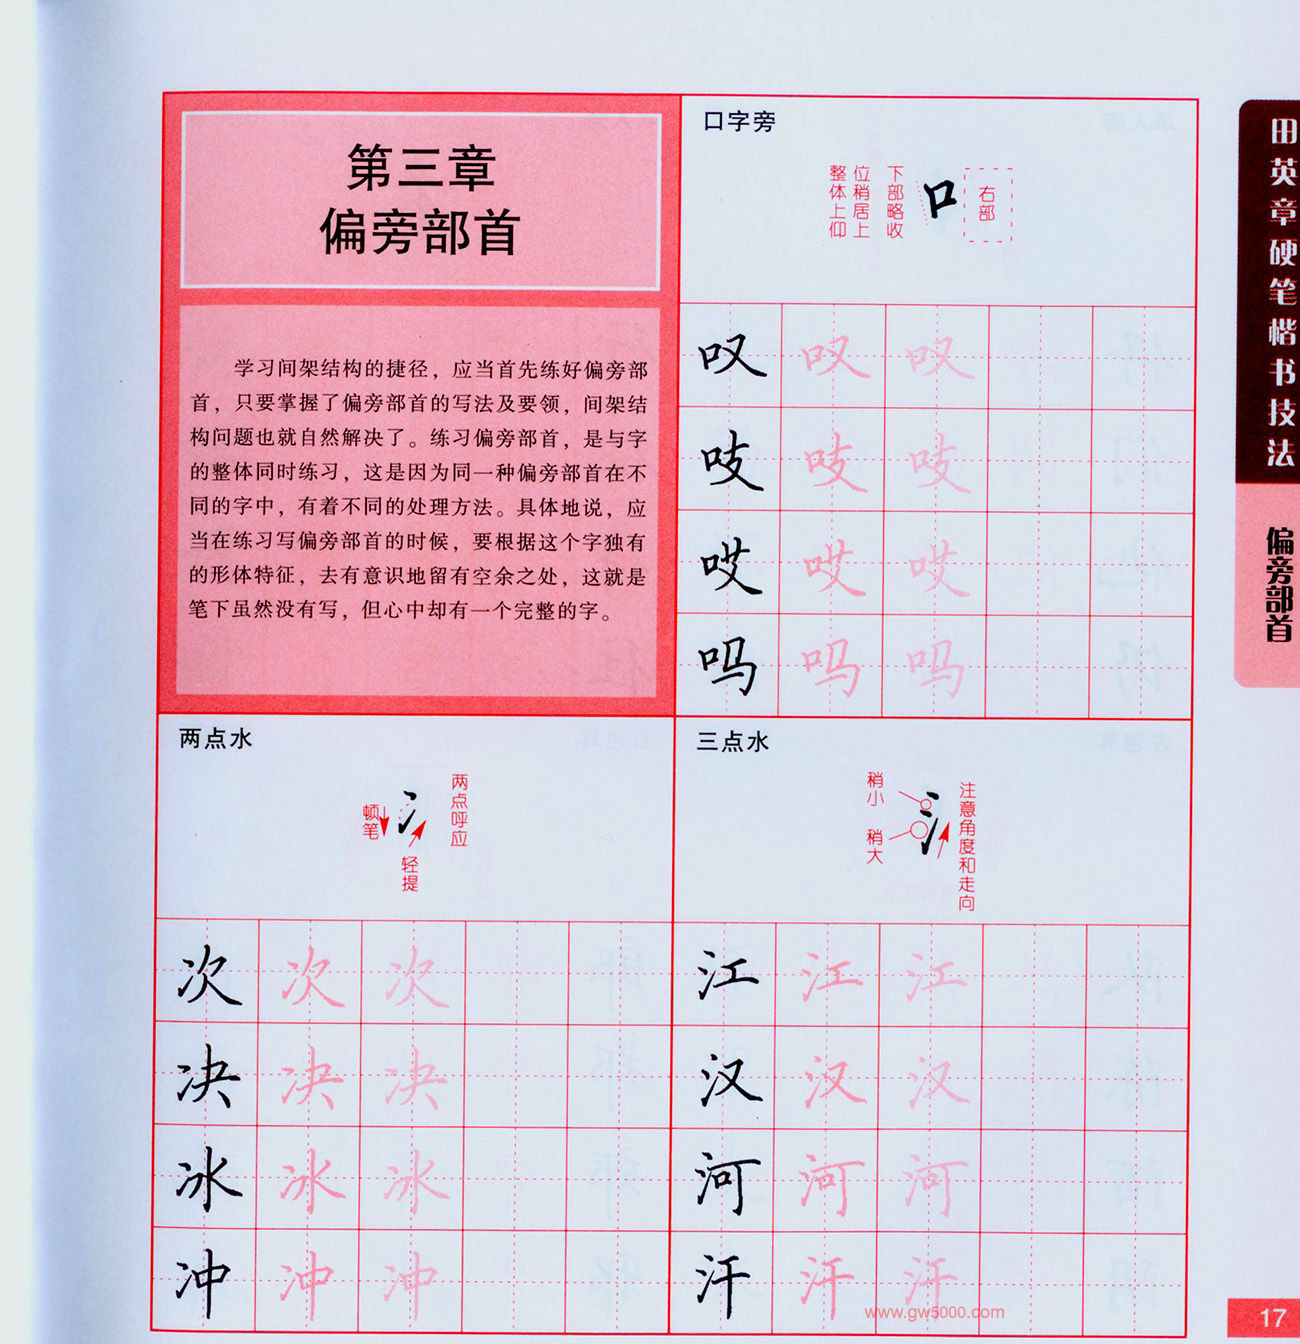 第三章
偏旁部首
学习间架结构的捷径，应当首先练好偏旁部
首，只要掌握了偏旁部首的写法及要领，间架结
构问题也就自然解决了。练习偏旁部首，是与字
的整体同时练习，这是因为同一种偏旁部首在不
同的字中，有着不同的处理方法。具体地说，应
当在练习写偏旁部首的时候，要根据这个字独有
的形体特征，去有意识地留有空余之处，这就是
笔下虽然没有写，但心中却有一个完整的字。
口字旁
整体上仰
位稍居上
下部略收
口
右部
叹 叹 叹
吱 吱 吱
哎 哎 哎
吗 吗 吗
两点水
顿笔
冫
轻提
两点呼应
次 次 次
决 决 决
冰 冰 冰
冲 冲 冲
三点水
稍小
稍大
氵
注意角度和走向
江 江 江
汉 汉 汉
河 河 河
汗 汗 汗
www.gw5000.com
田英章硬笔楷书技法
偏旁部首
17